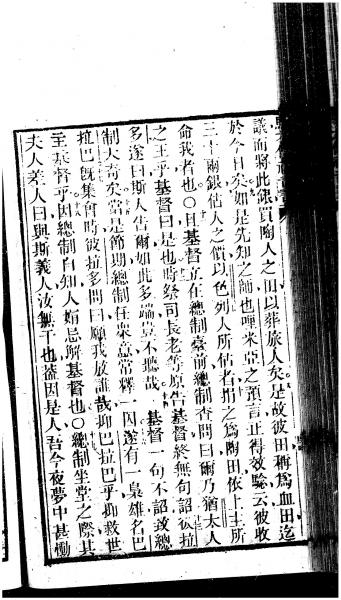 議而將此銀買陶人之田以葬旅人矣是故彼田稱爲血田迄
於今日矣如是先知之師也哩米亞之預言止得效驗云彼收
三十兩銀估人之價以色列人所估者捐之爲陶田依上主所
命我者也○且基督立在總制臺前總制查問曰爾乃猶太人
之王乎基督曰是也時祭司長老等原告基督終無句詔彼拉
多遂曰斯人告爾如此多端豈不聽哉基督一句不詔致總
制大奇矣當是節期總制在衆意常釋一囚遂有一梟雄名巴
拉巴既集會時彼拉多問曰願我放誰哉抑巴拉巴乎抑救世
主基督乎因總制自知人媢忌解基督也○總制坐堂之際其
夫人差人曰與斯義人汝無干也蓋因是人吾今夜夢中甚慟